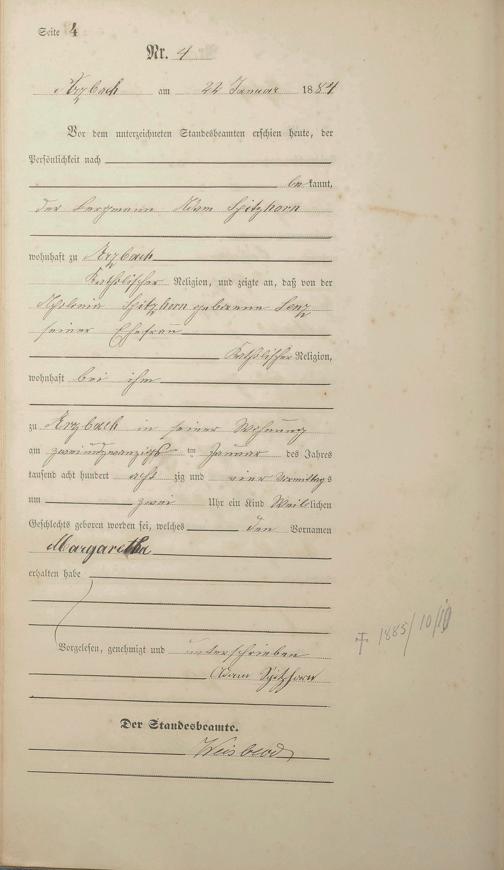 Seite 4
Nr. 4
Arzbach am 22 Januar 1884
Vor dem unterzeichneten Standesbeamten erschien heute, der
Persönlichkeit nach
bekannt,
der Bergmann Adam Spitzhorn
wohnhaft zu Arzbach
Katholischer Religion, und zeigte an, daß von der
Apolonia Spitzhorn geborene Lenz
seiner Ehefrau
Katholischer Religion,
wohnhaft bei ihm
zu Arzbach in seiner Wohnung
am zweiundzwanzigsten Januar des Jahres
tausend acht hundert achtzig und vier Vormittags
um zwei Uhr ein Kind Weiblichen
Geschlechts geboren worden sei, welches den Vornamen
Margaretha
erhalten habe
Vorgelesen, genehmigt und unterschrieben
Adam Spitzhorn
Der Standesbeamte.
† 1885/10/10